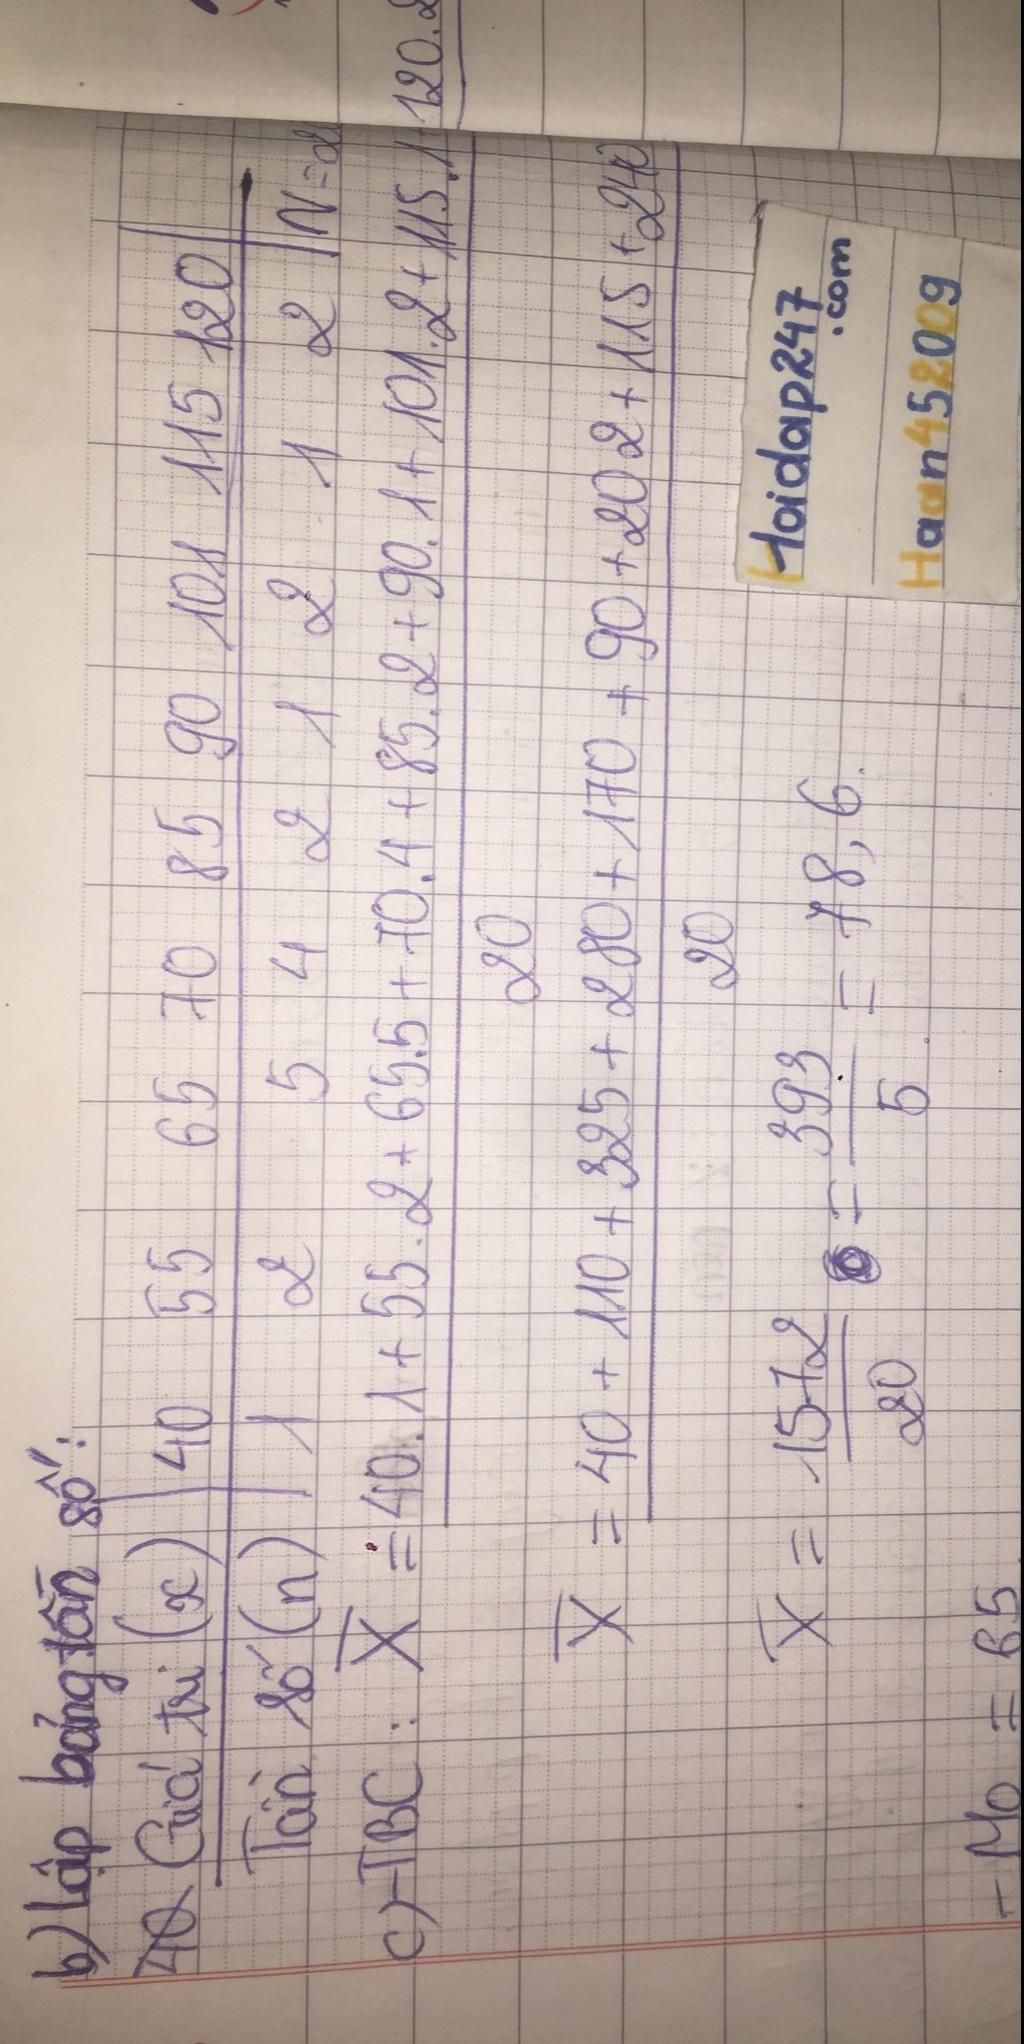 b) Lập bảng tần số:
Giá trị (x) 40 55 65 70 85 90 101 115 120
Tần số (n) 1 2 5 4 2 1 2 1 2 N=
c) - TBC: X̅ = 40.1+55.2+65.5+70.4+85.2+90.1+101.2+115.1 120.2
20
X̅ = 40+110+325+280+170+90+202+115+240
20
X̅ = 1572 = 393 = 78,6.
20 5
- Mo = 65
Hoidap247
.com
Haan452009